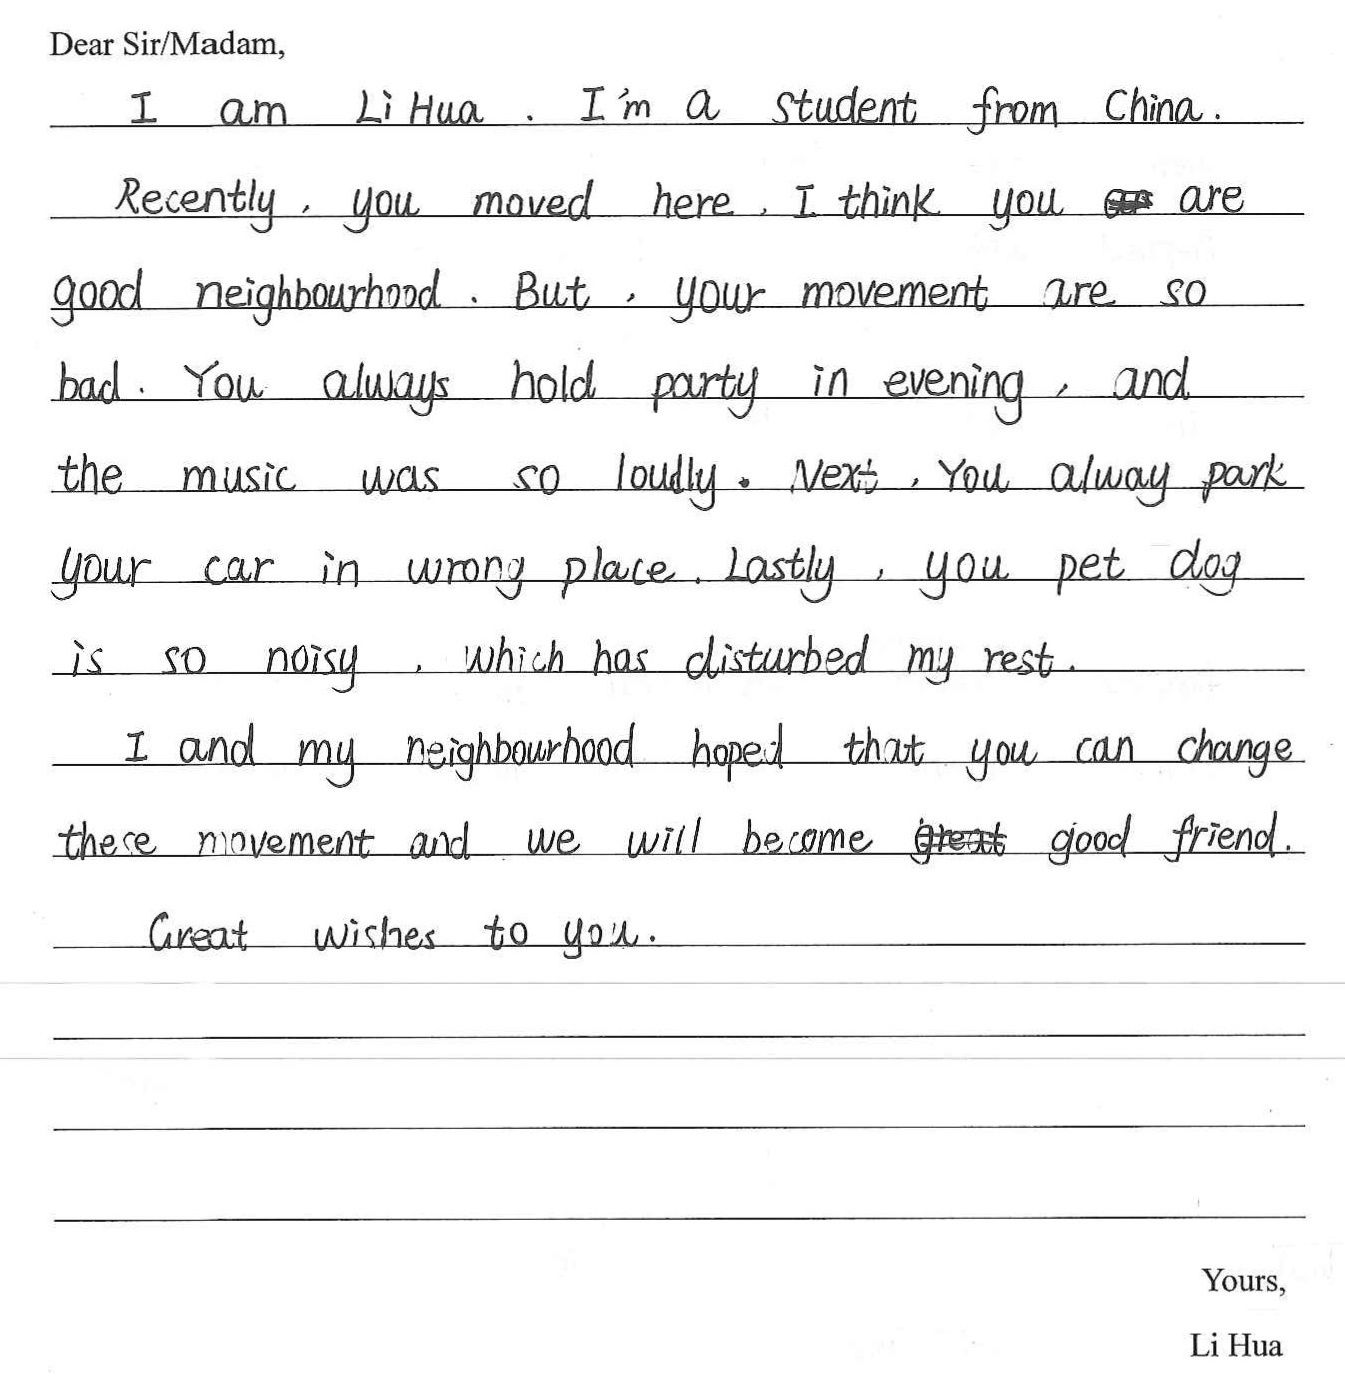 Dear Sir/Madam,
I am Li Hua. I'm a student from China.
Recently, you moved here, I think you are
good neighbourhood. But, your movement are so
bad. You always hold party in evening, and
the music was so loudly. Next, You alway park
your car in wrong place. Lastly, you pet dog
is so noisy, which has disturbed my rest.
I and my neighbourhood hoped that you can change
these movement and we will become great good friend.
Great wishes to you.
Yours,
Li Hua